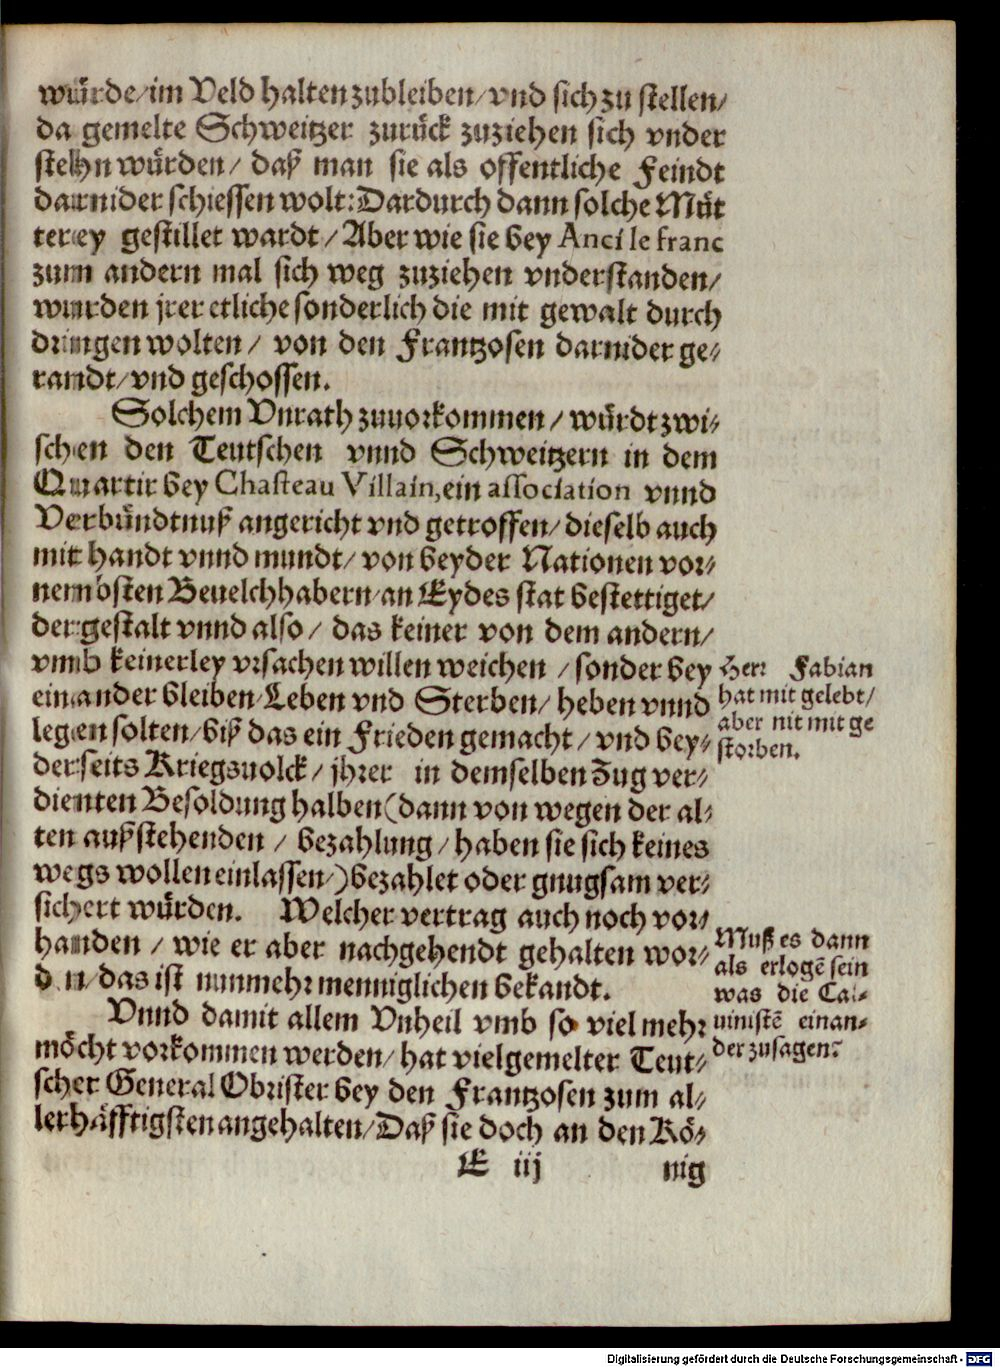 wuͤrde/im Veld halten zubleiben/vnd sich zu stellen/
da gemelte Schweitzer zuruͤck zuziehen sich vnder
stehn wuͤrden/ daß man sie als offentliche Feindt
darnider schiessen wolt: Dardurch dann solche Muͤt
terey gestillet wardt/ Aber wie sie bey Anci le franc
zum andern mal sich weg zuziehen vnderstanden/
wurden jrer etliche sonderlich die mit gewalt durch
dringen wolten/ von den Frantzosen darnider ge-
randt/vnd geschossen.
Solchem Vnrath zuuorkommen/ wuͤrdt zwi-
schen den Teutschen vnnd Schweitzern in dem
Quartir bey Chasteau Villain, ein association vnnd
Verbuͤndtnuß angericht vnd getroffen/ dieselb auch
mit handt vnnd mundt/ von beyder Nationen vor-
nembsten Beuelchhabern/an Eydes stat bestettiget/
dergestalt vnnd also/ das keiner von dem andern/
vmb keinerley vrsachen willen weichen/ sonder bey
einander bleiben/Leben vnd Sterben/ heben vnnd
legen solten/biß das ein Frieden gemacht/ vnd bey-
derseits Kriegsuolck/ jhrer in demselben Zug ver-
dienten Besoldung halben (dann von wegen der al-
ten außstehenden/ bezahlung/ haben sie sich keines
wegs wollen einlassen/) bezahlet oder gnugsam ver-
sichert wuͤrden. Welcher vertrag auch noch vor-
handen/ wie er aber nachgehendt gehalten wor-
d n/das ist nunmehr menniglichen bekandt.
Vnnd damit allem Vnheil vmb so viel mehr
moͤcht vorkommen werden/ hat vielgemelter Teut-
scher General Obrister bey den Frantzosen zum al-
lerhaͤfftigsten angehalten/ Daß sie doch an den Koͤ-
E iij nig
Herr Fabian
hat mit gelebt/
aber nit mit ge
storben.
Muß es dann
als erlogē sein
was die Cal-
uinistē einan-
der zusagen?
Digitalisierung gefördert durch die Deutsche Forschungsgemeinschaft - DFG